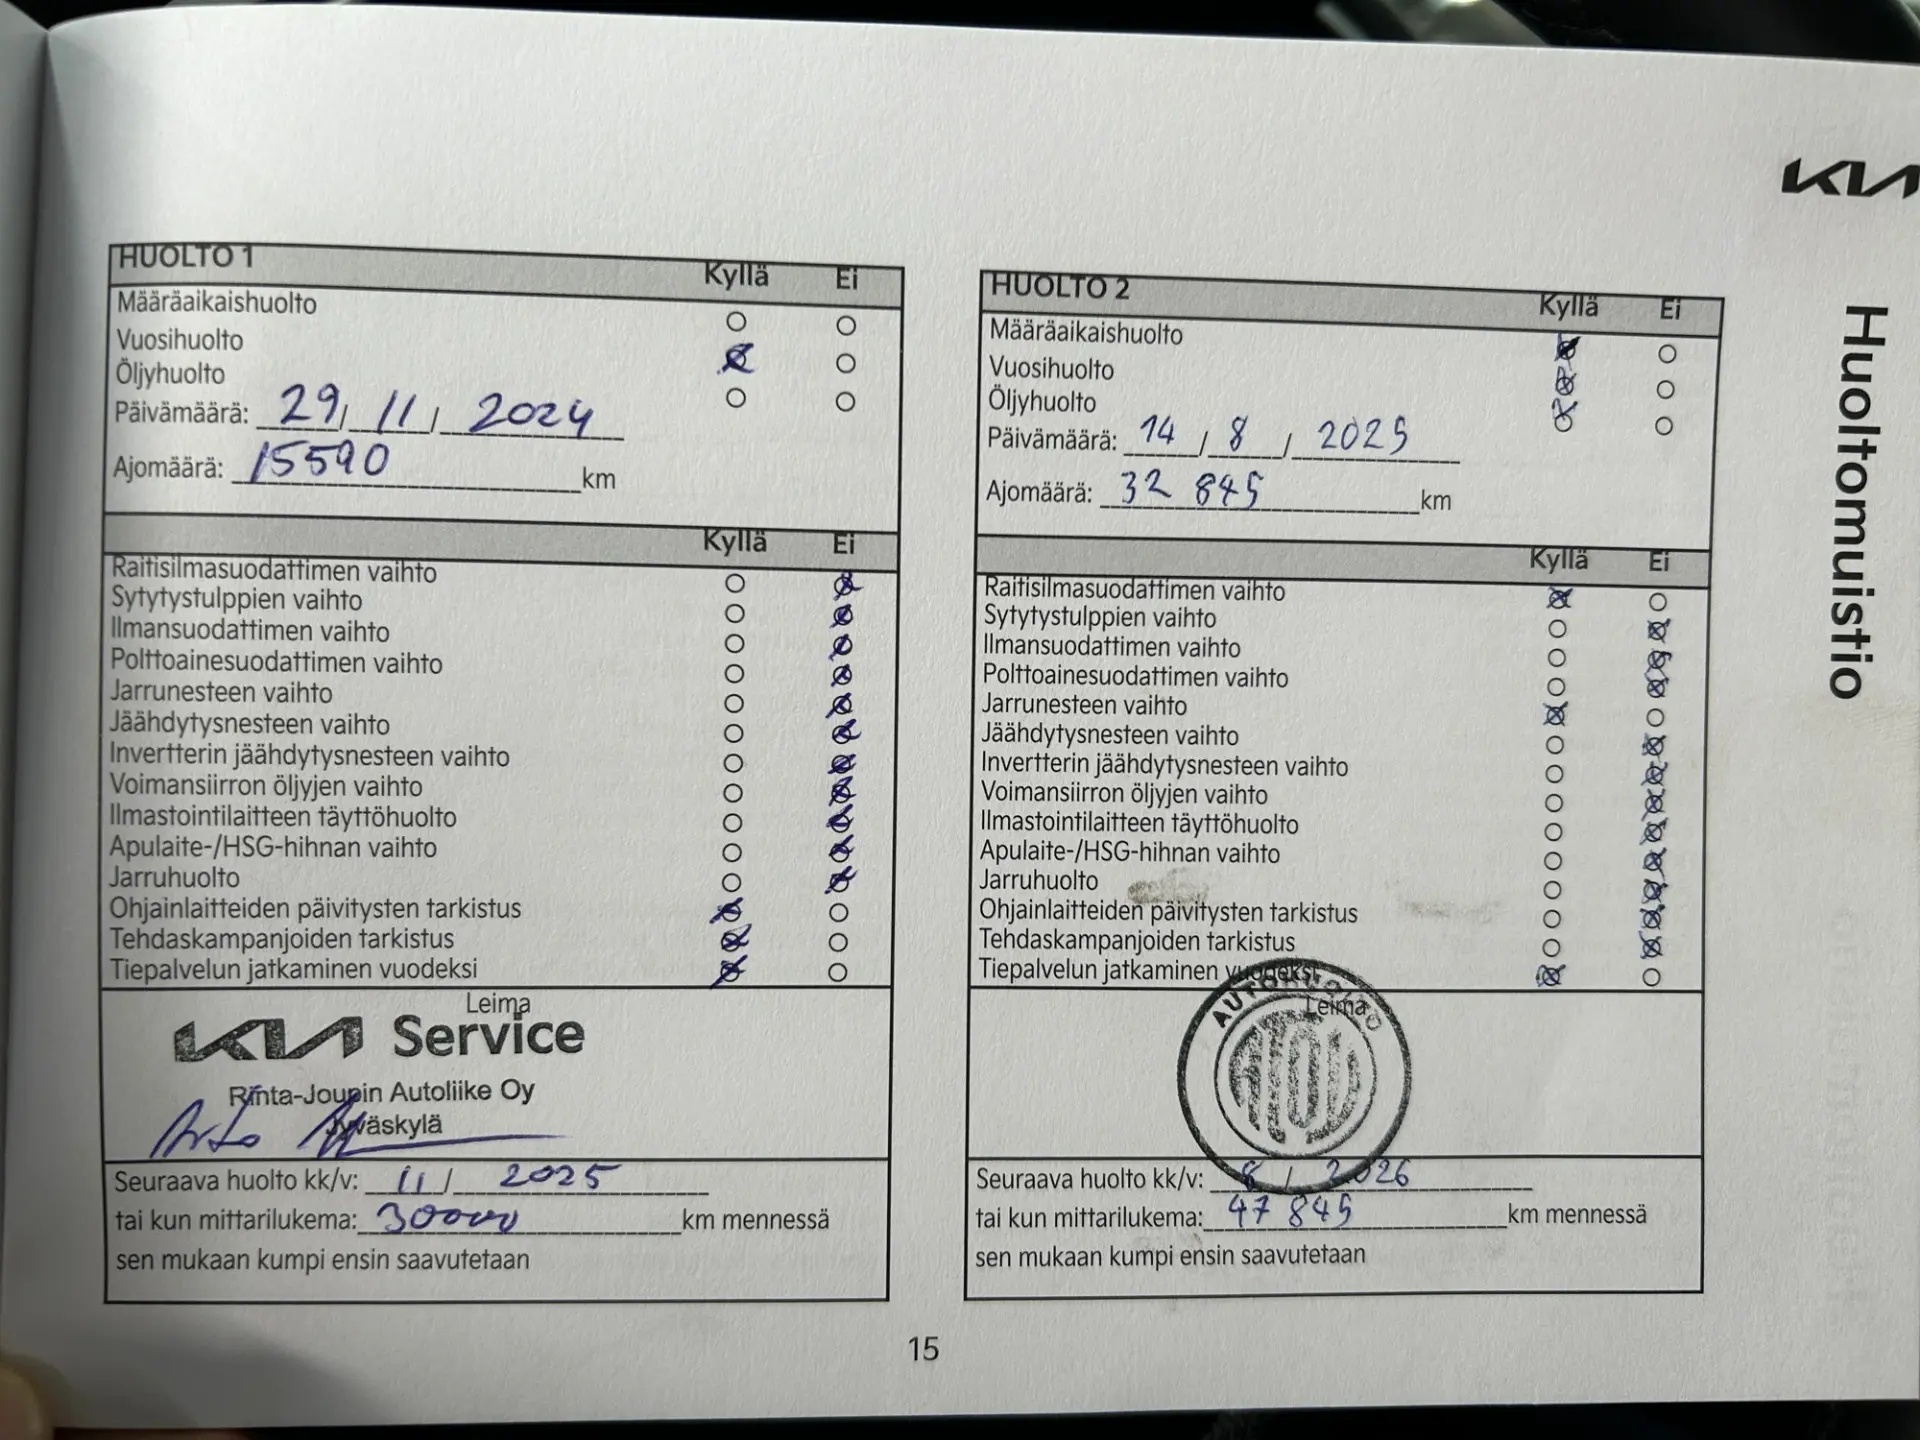 KIA
Huoltomuistio
HUOLTO 1 Kyllä Ei
Määräaikaishuolto
Vuosihuolto
Öljyhuolto
Päivämäärä: 29 / 11 / 2024
Ajomäärä: 15590 km
Kyllä Ei
Raitisilmasuodattimen vaihto
Sytytystulppien vaihto
Ilmansuodattimen vaihto
Polttoainesuodattimen vaihto
Jarrunesteen vaihto
Jäähdytysnesteen vaihto
Invertterin jäähdytysnesteen vaihto
Voimansiirron öljyjen vaihto
Ilmastointilaitteen täyttöhuolto
Apulaite-/HSG-hihnan vaihto
Jarruhuolto
Ohjainlaitteiden päivitysten tarkistus
Tehdaskampanjoiden tarkistus
Tiepalvelun jatkaminen vuodeksi
Leima
KIA Service
Rinta-Joupin Autoliike Oy
Jyväskylä
Seuraava huolto kk/v: 11 / 2025
tai kun mittarilukema: 30000 km mennessä
sen mukaan kumpi ensin saavutetaan
HUOLTO 2 Kyllä Ei
Määräaikaishuolto
Vuosihuolto
Öljyhuolto
Päivämäärä: 14 / 8 / 2025
Ajomäärä: 32 845 km
Kyllä Ei
Raitisilmasuodattimen vaihto
Sytytystulppien vaihto
Ilmansuodattimen vaihto
Polttoainesuodattimen vaihto
Jarrunesteen vaihto
Jäähdytysnesteen vaihto
Invertterin jäähdytysnesteen vaihto
Voimansiirron öljyjen vaihto
Ilmastointilaitteen täyttöhuolto
Apulaite-/HSG-hihnan vaihto
Jarruhuolto
Ohjainlaitteiden päivitysten tarkistus
Tehdaskampanjoiden tarkistus
Tiepalvelun jatkaminen vuodeksi
Leima
AUTOHUOLTO
Seuraava huolto kk/v: 8 / 2026
tai kun mittarilukema: 47 845 km mennessä
sen mukaan kumpi ensin saavutetaan
15